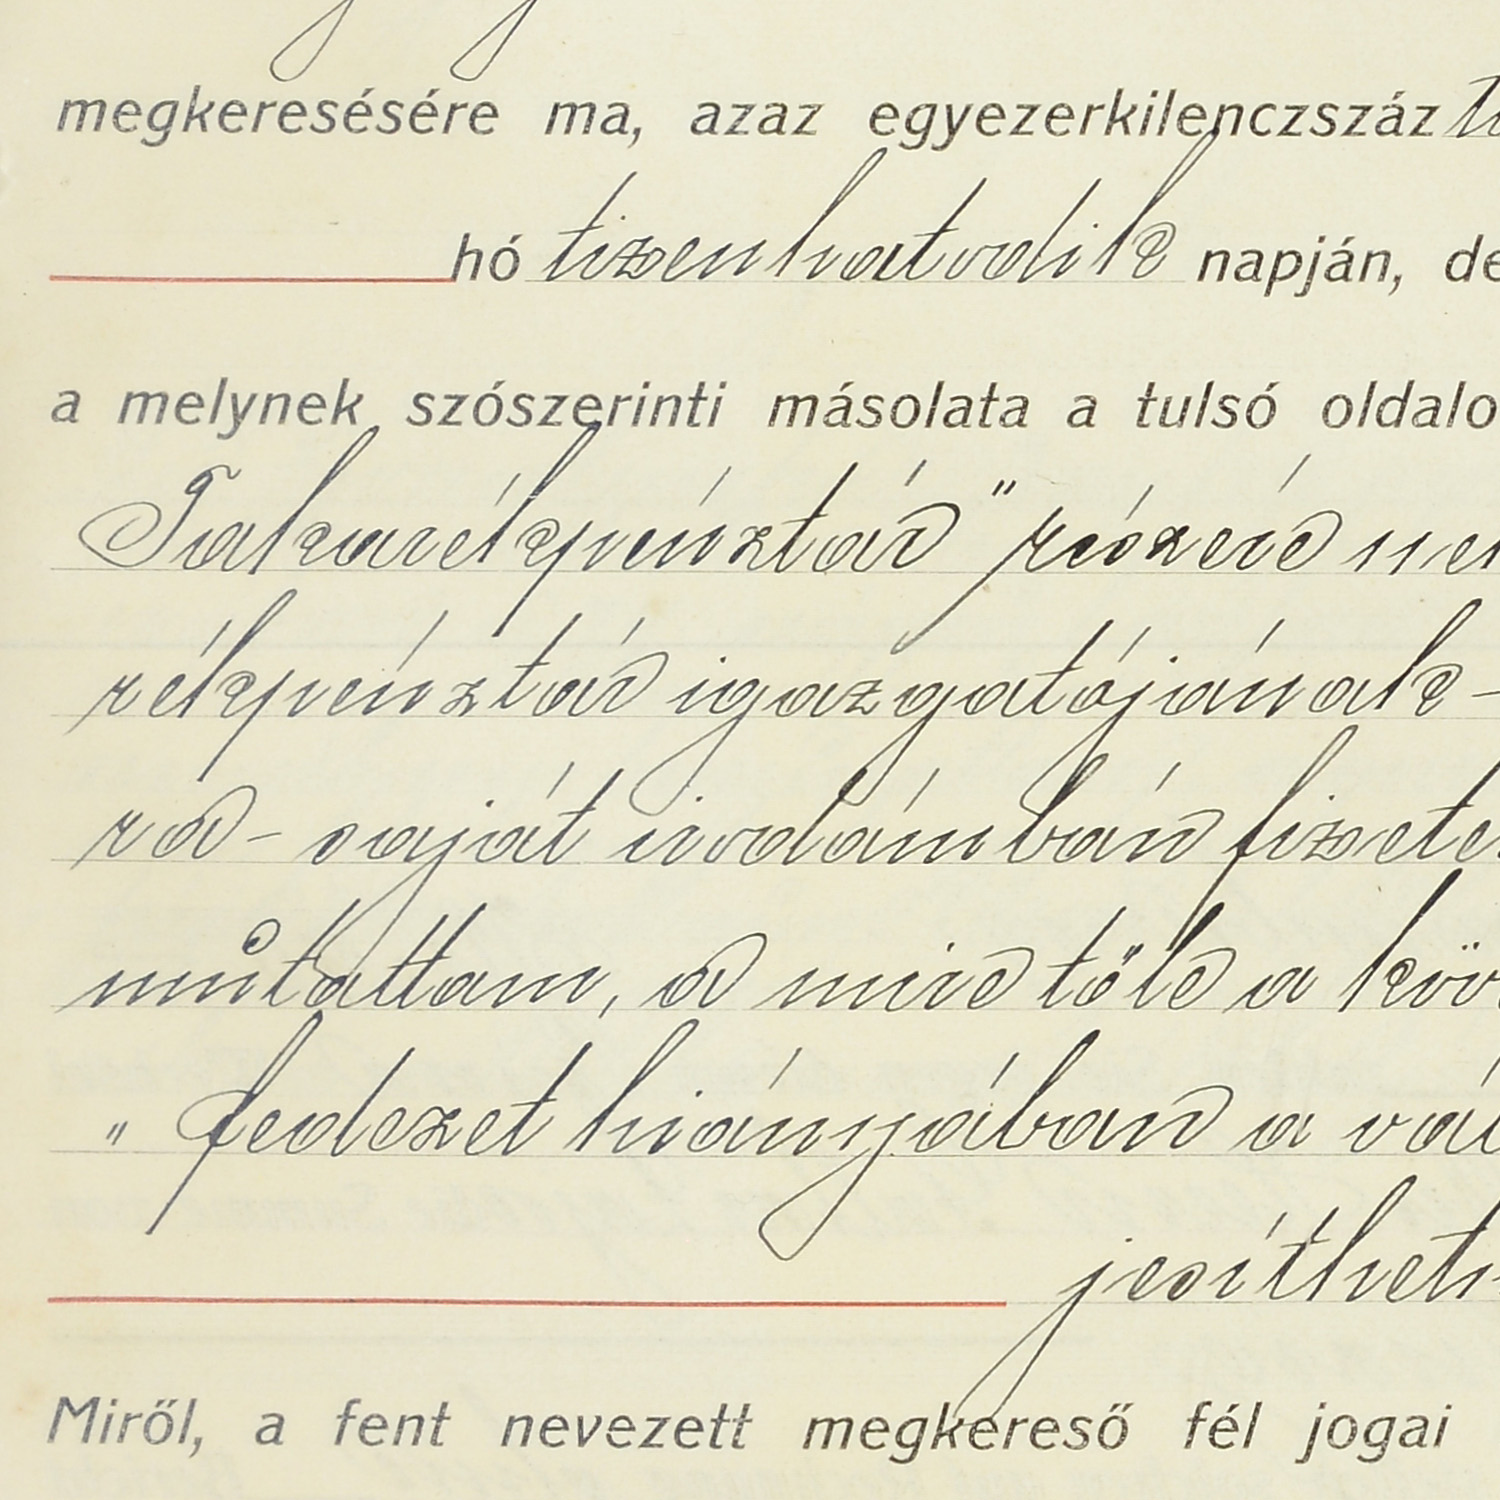 megkeresésére ma, azaz egyezerkilenczszáz
hó tizenhatodik napján, de
a melynek szószerinti másolata a tulsó oldalo
Takarékpénztár" részére
rékpénztár igazgatójának -
ra - saját irodámban fizete
mutattam, a mire tőle a köv
" fedezet hiányában a vál
jesíthet
Miről, a fent nevezett megkereső fél jogai